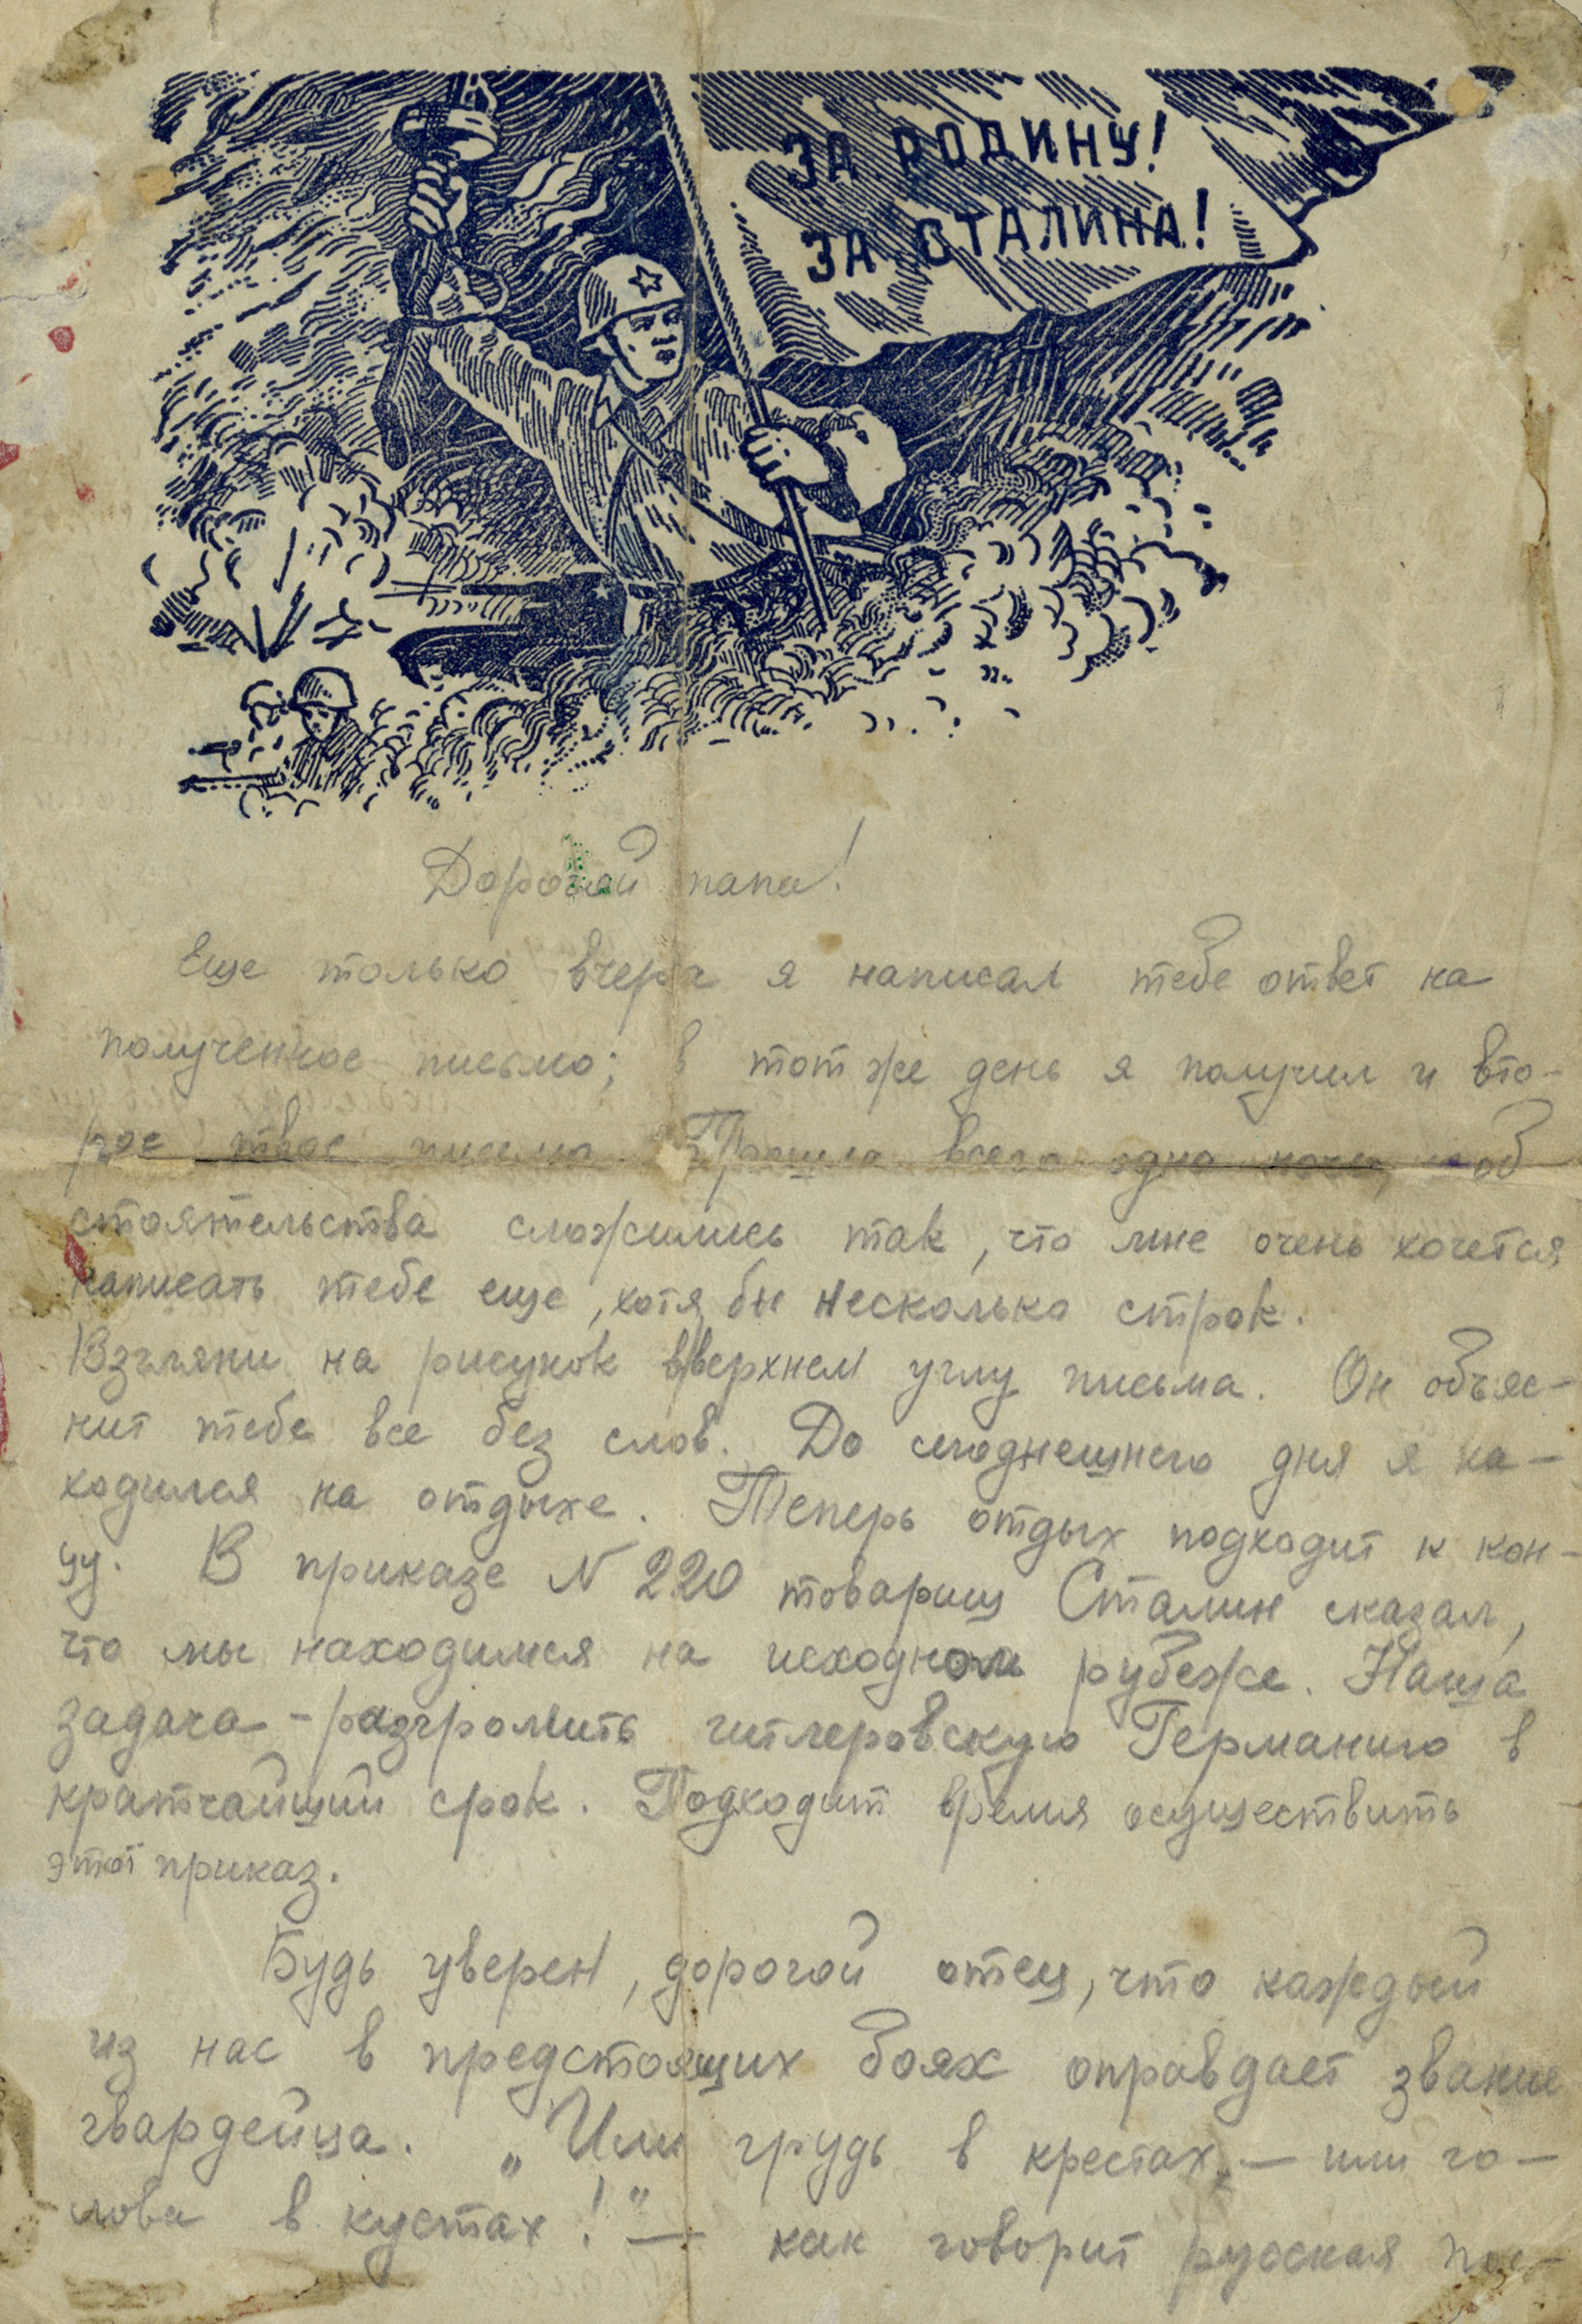 ЗА РОДИНУ!
ЗА СТАЛИНА!
Дорогой папа!
Еще только вчера я написал тебе ответ на
полученное письмо; в тот же день я получил и вто-
рое твое письмо. Прошла всего одна ночь, и об
стоятельства сложились так, что мне очень хочется
написать тебе еще, хотя бы несколько строк.
Взгляни на рисунок в верхнем углу письма. Он объяс-
нит тебе все без слов. До сегоднешнего дня я на-
ходился на отдыхе. Теперь отдых подходит к кон-
цу. В приказе N 220 товарищ Сталин сказал,
что мы находимся на исходном рубеже. Наша
задача - разгромить гитлеровскую Германию в
кратчайший срок. Подходит время осуществить
этот приказ.
Будь уверен, дорогой отец, что каждый
из нас в предстоящих боях оправдает звание
гвардейца. „Или грудь в крестах, — или го-
лова в кустах!" — как говорит русская пос-